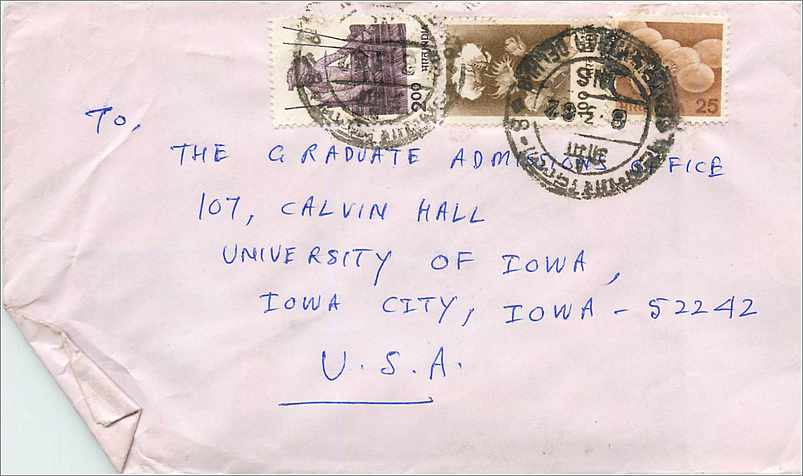 2.00 भारत INDIA
25
To,
THE GRADUATE ADMISSIONS OFFICE
107, CALVIN HALL
UNIVERSITY OF IOWA,
IOWA CITY, IOWA - 52242
U.S.A.